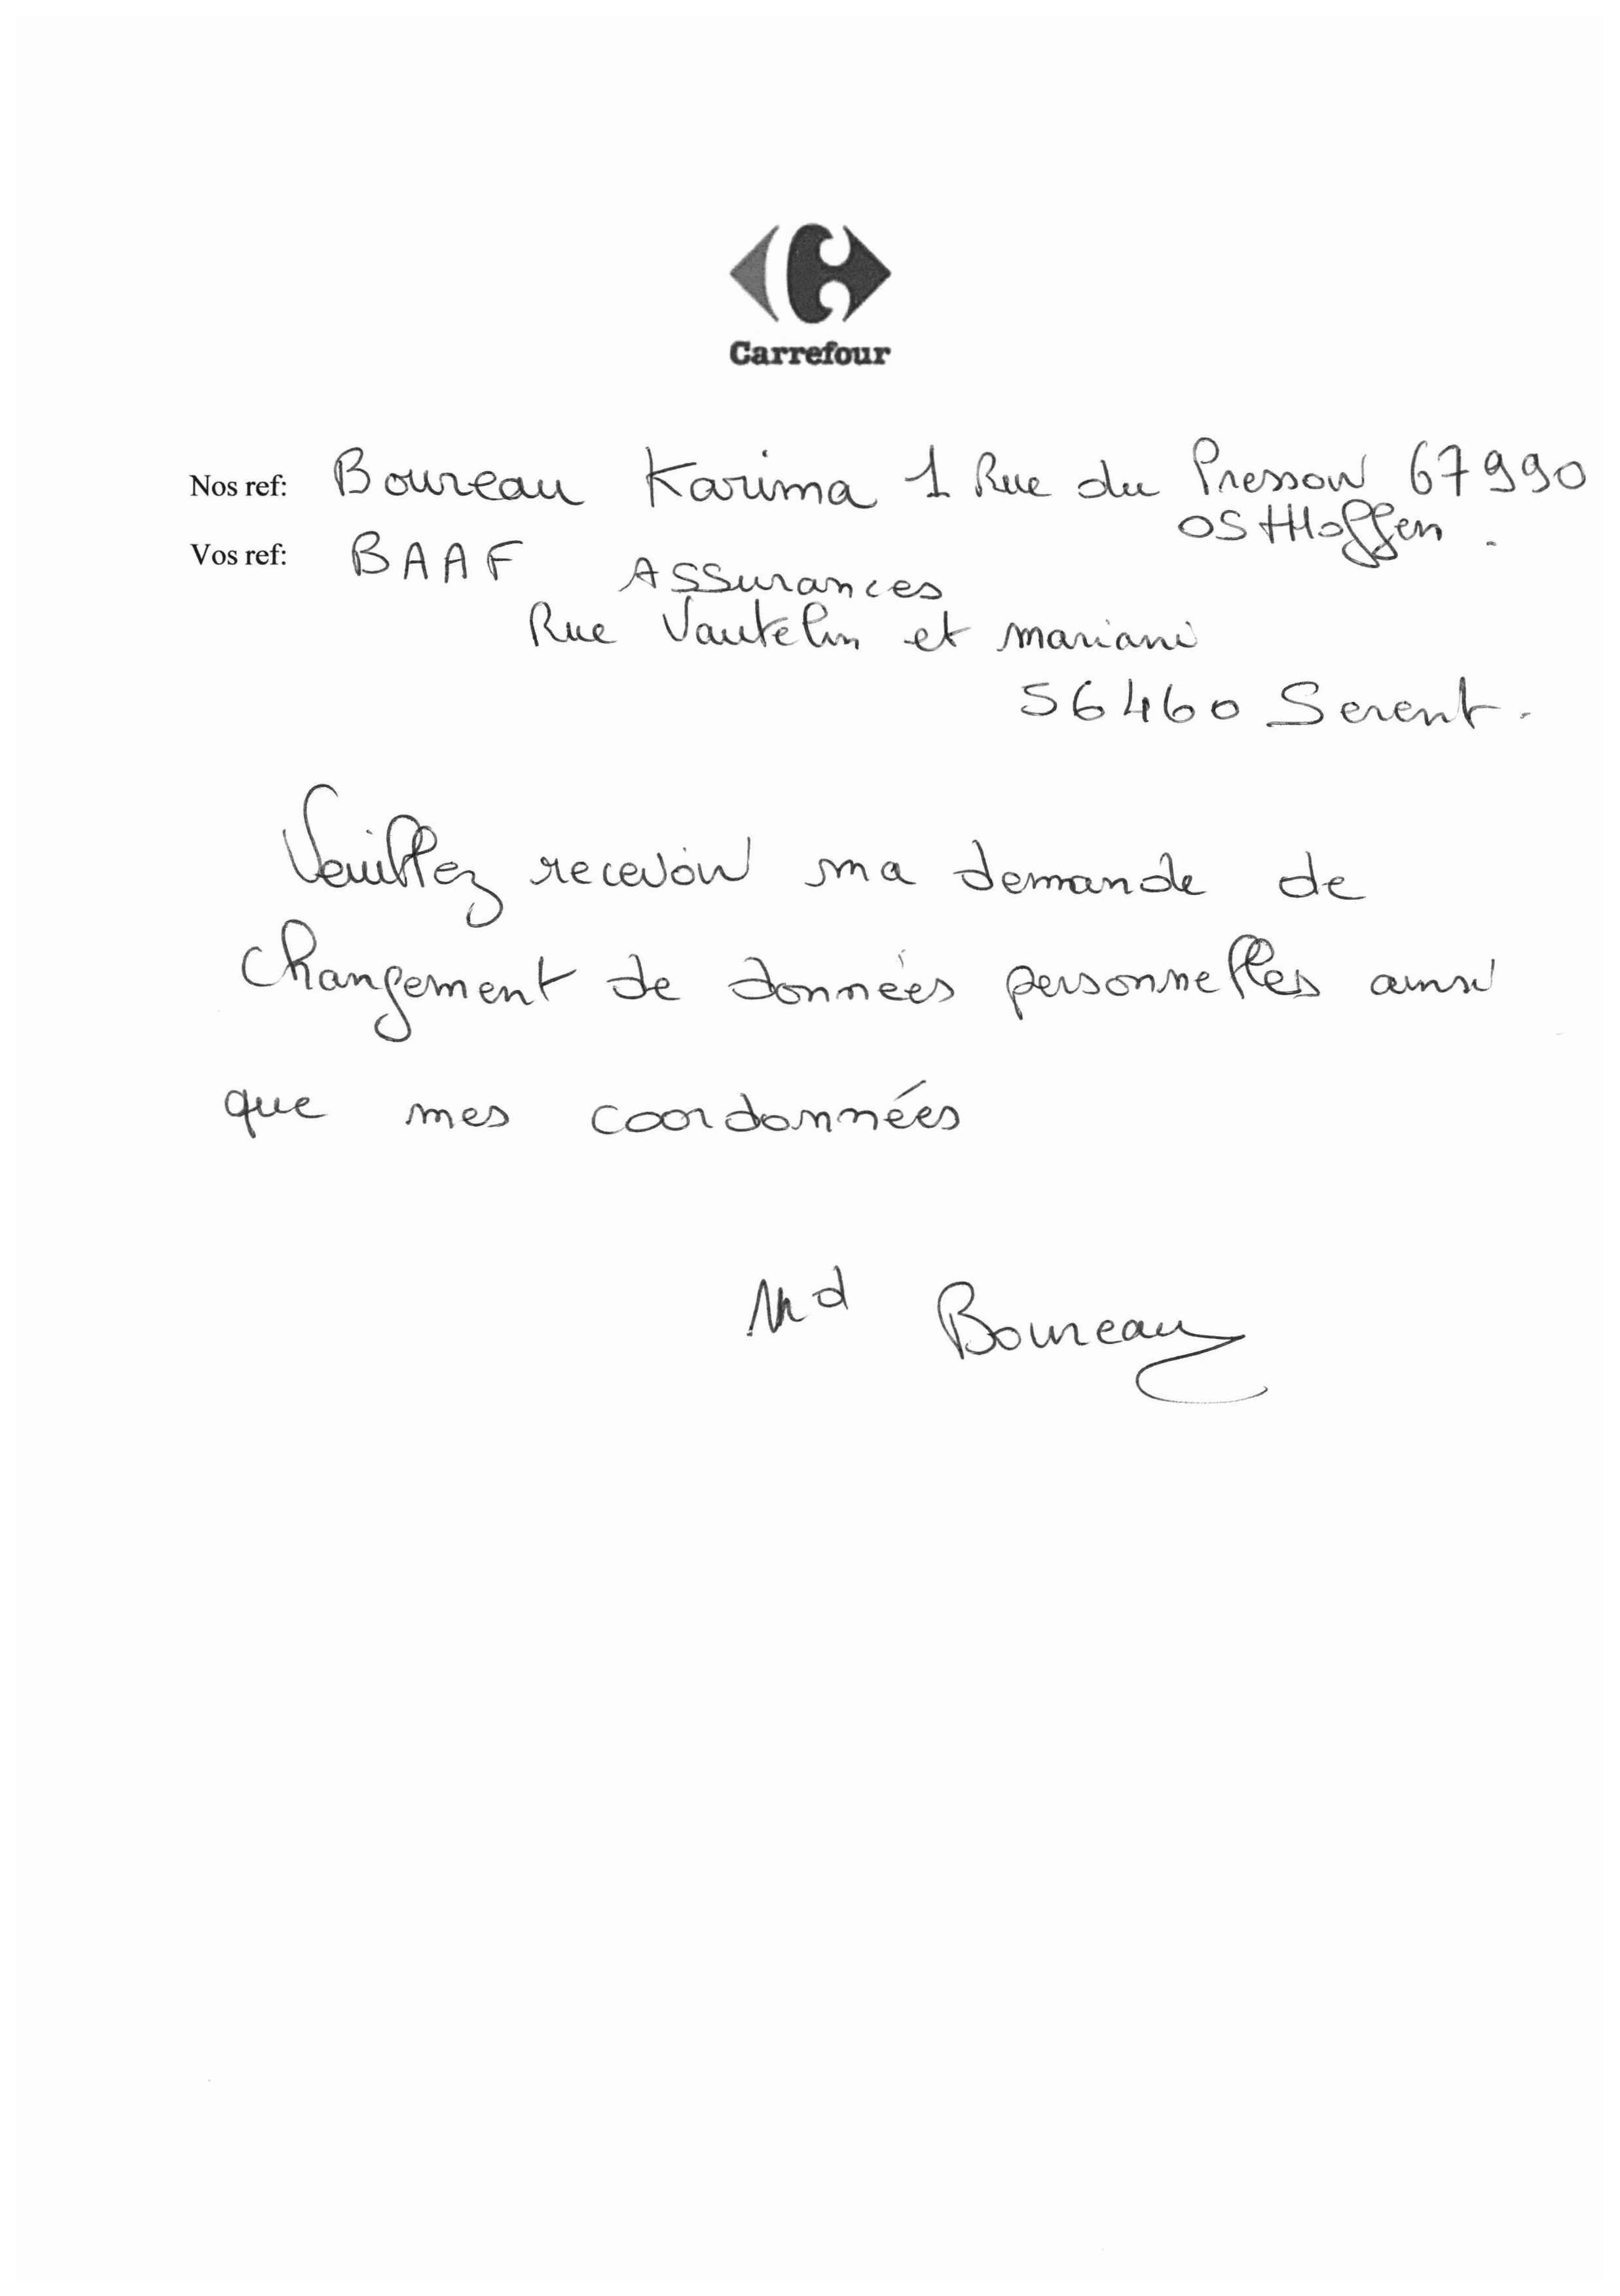 Carrefour
Nos ref: Boureau Karima 1 Rue du Pressoir 67990
OSTHoffen.
Vos ref: BAAF Assurances
Rue Vautelin et mariani
56460 Serent.
Veuillez recevoir ma demande de
changement de données personnelles ainsi
que mes coordonnées
Md Boureau